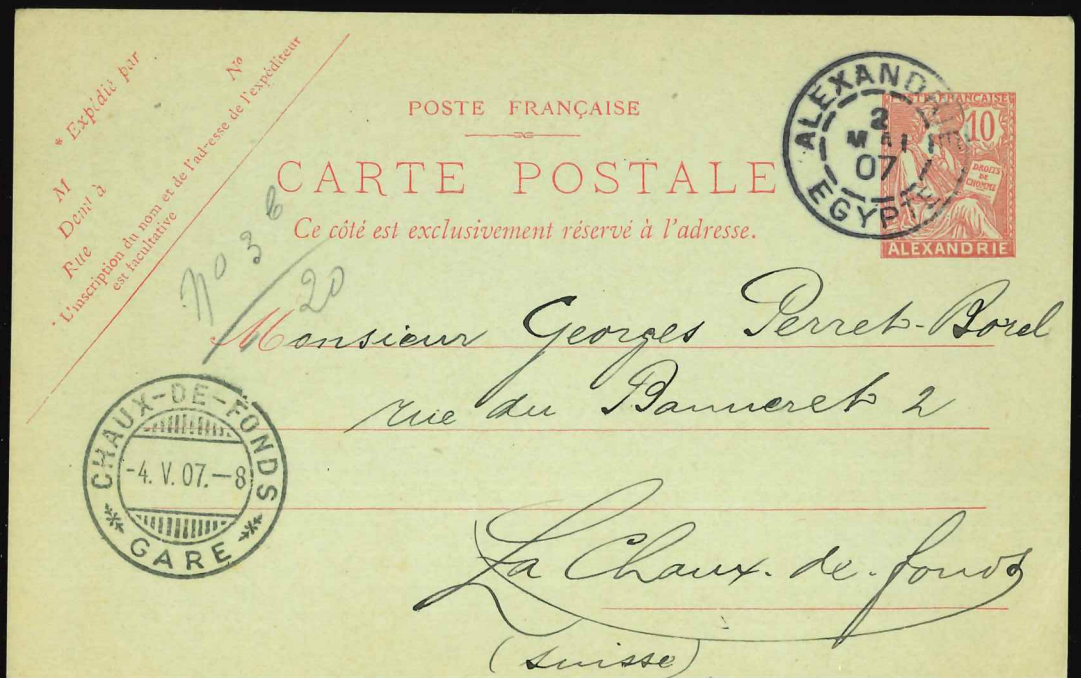 * Expédié par
M
Dem^t à
Rue
N^o
* L'inscription du nom et de l'adresse de l'expéditeur
est facultative
POSTE FRANÇAISE
CARTE POSTALE
Ce côté est exclusivement réservé à l'adresse.
ALEXANDRIE
2
MAI
07
EGYPTE
FRANÇAISE
10
DROITS
DE
L'HOMME
ALEXANDRIE
No 3
20
Monsieur Georges Perret-Borel
rue du Banneret 2
CHAUX-DE-FONDS
-4. V. 07.-8
GARE
La Chaux-de-fonds
(Suisse)